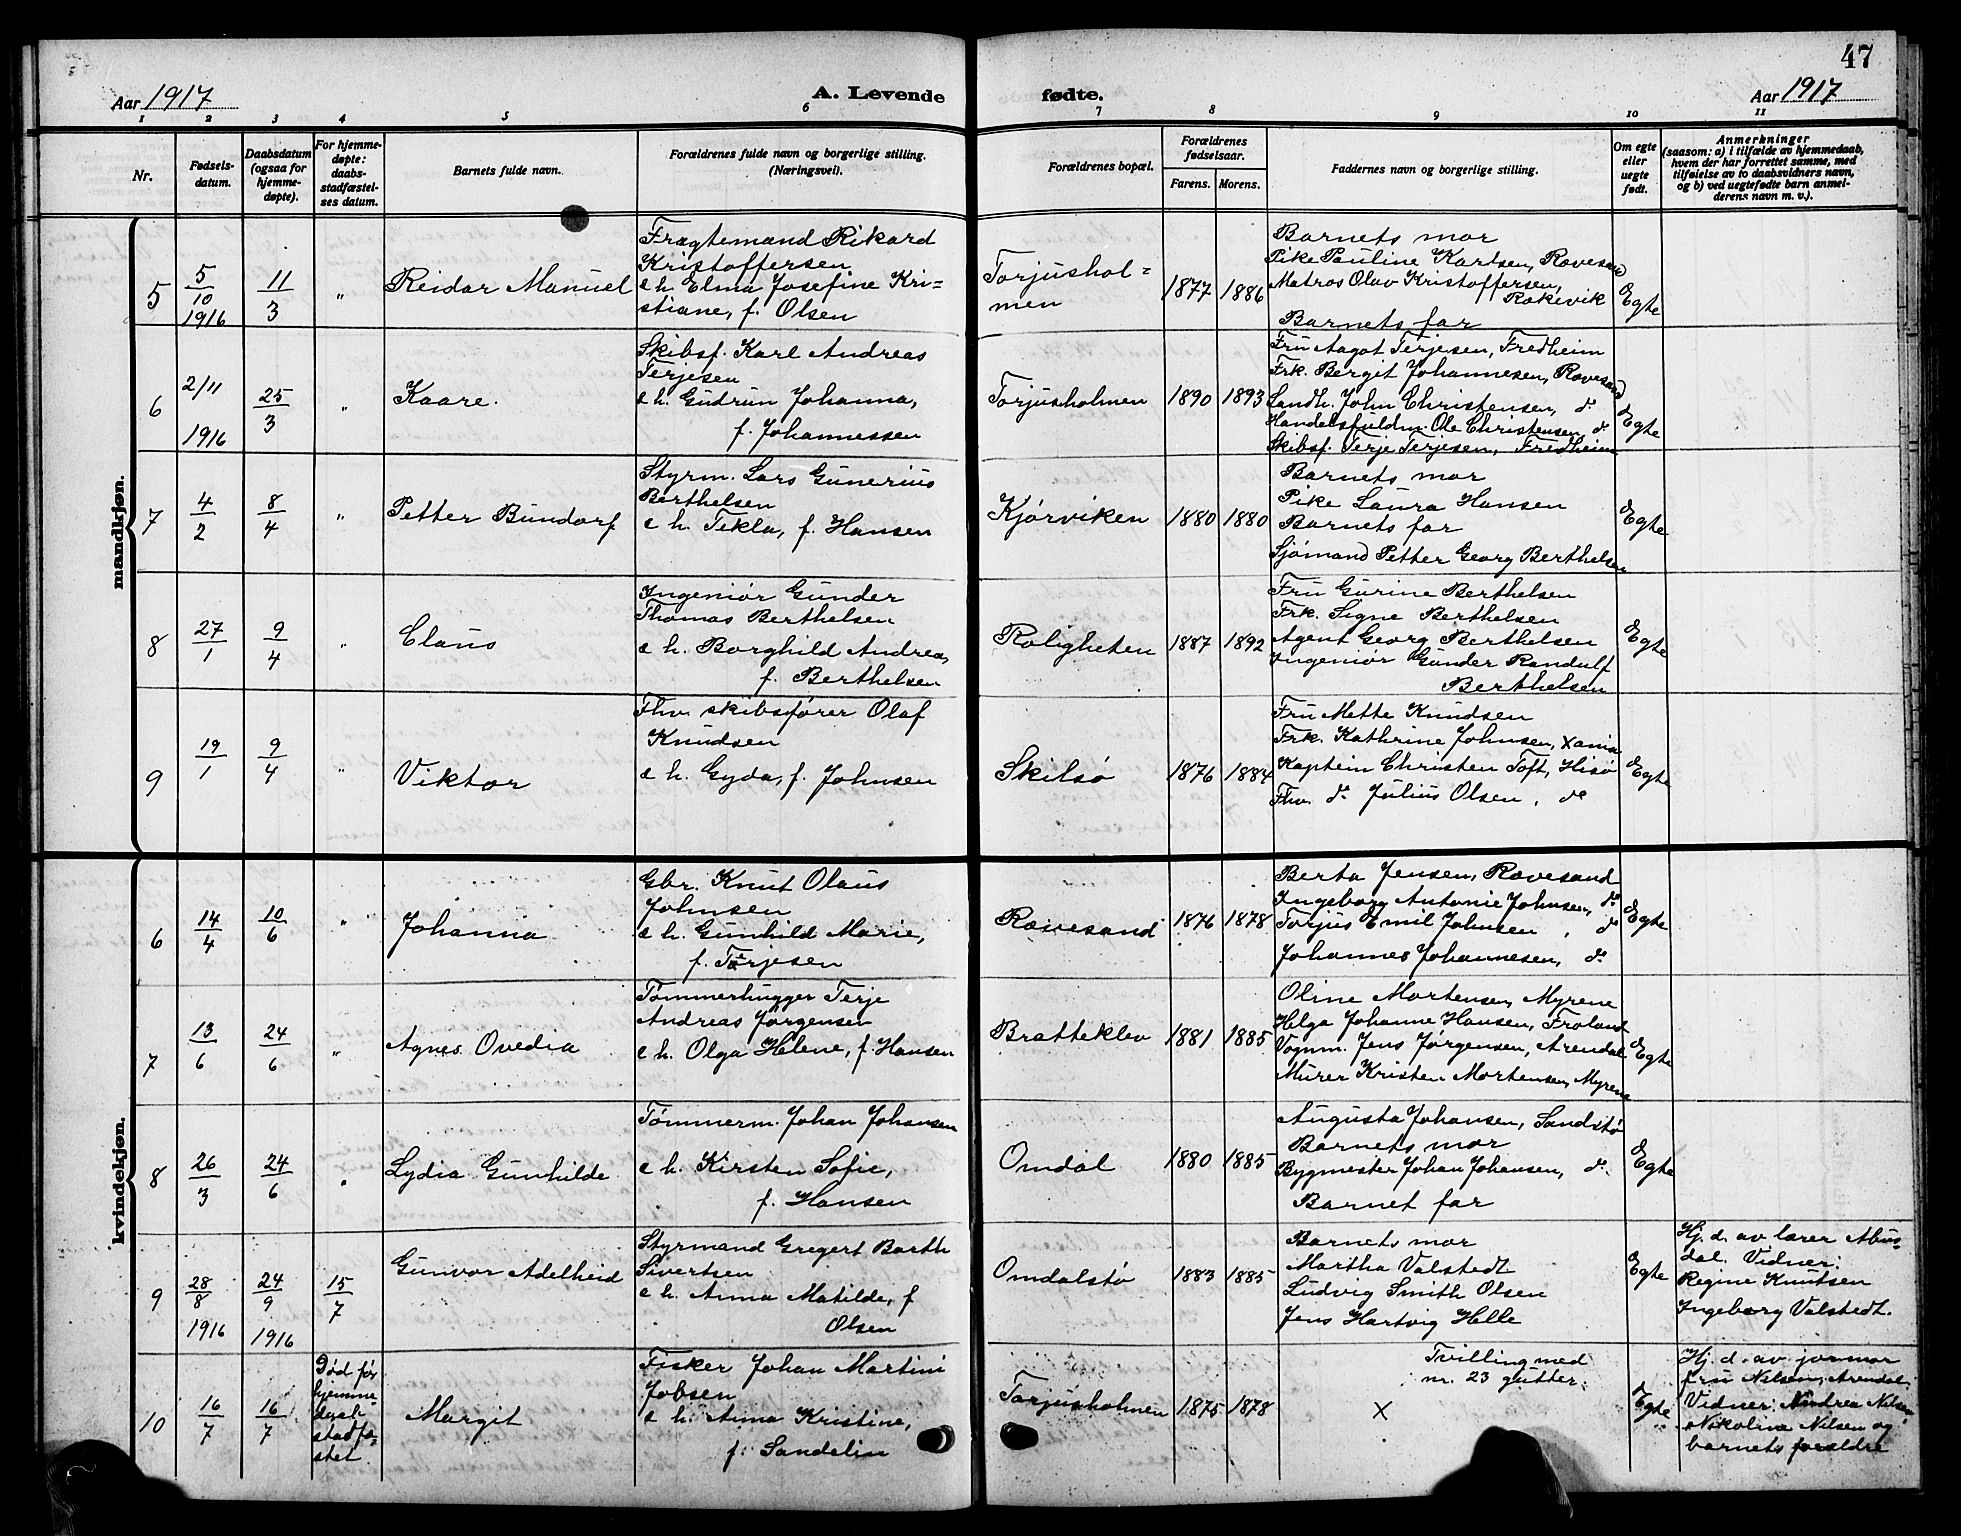 47
Aar 1917
A. Levende
fødte.
Aar 1917
1 2 3 4 5 6 7 8 9 10 11
Nr.
Fødsels-
datum.
Daabsdatum
(ogsaa for
hjemme-
døpte).
For hjemme-
døpte:
daabs-
stadfæstel-
ses datum.
Barnets fulde navn.
Forældrenes fulde navn og borgerlige stilling.
(Næringsvei).
Forældrenes bopæl.
Forældrenes
fødselsaar.
Farens. Morens.
Faddernes navn og borgerlige stilling.
Om egte
eller
uegte
født.
Anmerkninger
(saasom: a) i tilfælde av hjemmedaab,
hvem der har forrettet samme, med
tilføielse av to daabsvidners navn,
og b) ved uegtefødte barn anmel-
derens navn m. v.).
mandkjøn.
5
5/10
1916
11/3
"
Reidar Manuel
Fragtemand Rikard
Kristoffersen
e h. Elma Josefine Kri=
stiane, f. Olsen
Torjushol=
men
1877 1886
Barnets mor
Pike Pauline Karlsen, Rævesand
Matros Olav Kristoffersen,
Rækevik
Barnets far
Egte
6
2/11
1916
25/3
"
Kaare.
Skibsf. Karl Andreas
Terjesen
e h. Gudrun Johanna,
f. Johannessen
Torjusholmen
1890 1893
Fru Aagot Terjesen, Fredheim
Frk. Bergit Johannesen, Rævesand
Landh. John Christensen, do
Handelsfuldm. Ole Christensen, do
Skibsf. Terje Terjesen, Fredheim
Egte
7
4/2
8/4
"
Petter Bundorf
Styrm. Lars Gunerius
Berthelsen
e h. Tekla, f. Hansen
Kjørviken
1880 1880
Barnets mor
Pike Laura Hansen
Barnets far
Sjømand Petter Georg Berthelsen
Egte
8
27/1
9/4
"
Claus
Ingeniør Gunder
Thomas Berthelsen
e h. Borghild Andrea,
f. Berthelsen
Roligheten
1887 1892
Fru Gurine Berthelsen
Frk. Signe Berthelsen
Agent Georg Berthelsen
Ingeniør Gunder Randulf
Berthelsen
Egte
9
19/1
9/4
"
Viktor
Fhv. skibsfører Olaf
Knudsen
e h. Gyda, f. Johnsen
Skilsø
1876 1884
Fru Mette Knudsen
Frk. Kathrine Johnsen, Xania
Kaptein Christen Toft, Hisø
Fhv. do Julius Olsen, do
Egte
kvindekjøn.
6
14/4
10/6
"
Johanna
Gbr. Knut Olaus
Johnsen
e h. Gunhild Marie,
f. Terjesen
Rævesand
1876 1878
Berta Jensen, Rævesand
Ingeborg Antonie Johnsen, do
Torjus Emil Johnsen, do
Johannes Johannesen, do
Egte
7
13/6
24/6
"
Agnes Ovedia
Tømmerhugger Terje
Andreas Jørgensen
e h. Olga Helene, f Hansen
Bratteklev
1881 1885
Oline Mortensen, Myrene
Helga Johanne Hansen, Froland
Vognm. Jens Jørgensen, Arendal
Murer Kristen Mortensen, Myrene
Egte
8
26/3
24/6
"
Lydia Gunhilde
Tømmerm. Johan Johansen
e h. Kirsten Sofie,
f. Hansen
Omdal
1880 1885
Augusta Johansen, Sandstø
Barnets mor
Bygmester Johan Johansen, do.
Barnet far
Egte
9
28/8
1916
24/9
1916
15/7
Gunvor Adelheid
Styrmand Gregert Barth
Sivertsen
e h. Anna Matilde, f
Olsen
Omdalstø
1883 1885
Barnets mor
Martha Valstedt
Ludvig Smith Olsen
Jens Hartvig Helle
Egte
Hj. d. av lærer Abus=
dal. Vidner:
Regine Knutsen
Ingeborg Valstedt.
10
16/7
16/7
Død før
hjemme=
daab
stadfæ=
stet
Margit
Fisker Johan Martini
Jobsen
e h. Anna Kristine,
f. Sandelin
Torjusholmen
1875 1878
Tvilling med
nr. 23 gutter.
X
Egte
Hj. d. av jormor
fru Nilsen, Arendal
Vidner: Andrea Nilsen,
Nikoline Nilsen og
barnets forældre